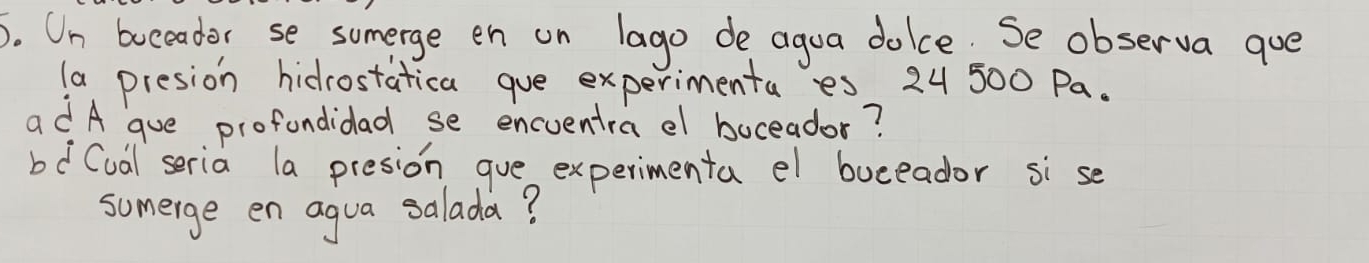 5. Un buceador se sumerge en un lago de agua dolce. Se observa que
la presión hidrostática que experimenta es 24 500 Pa.
a ¿A que profundidad se encuentra el buceador?
b ¿Cuál seria la presión que experimenta el buceador si se
sumerge en agua salada?